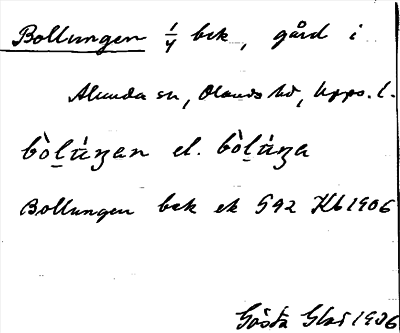 Bollungen 1/4 bek, gård i
Alunda sn, Olands hd, Upps. l.
bòḷúŋan el. bòḷúŋa
Bollungen bek ek 592 Kb 1906
Gösta 1906